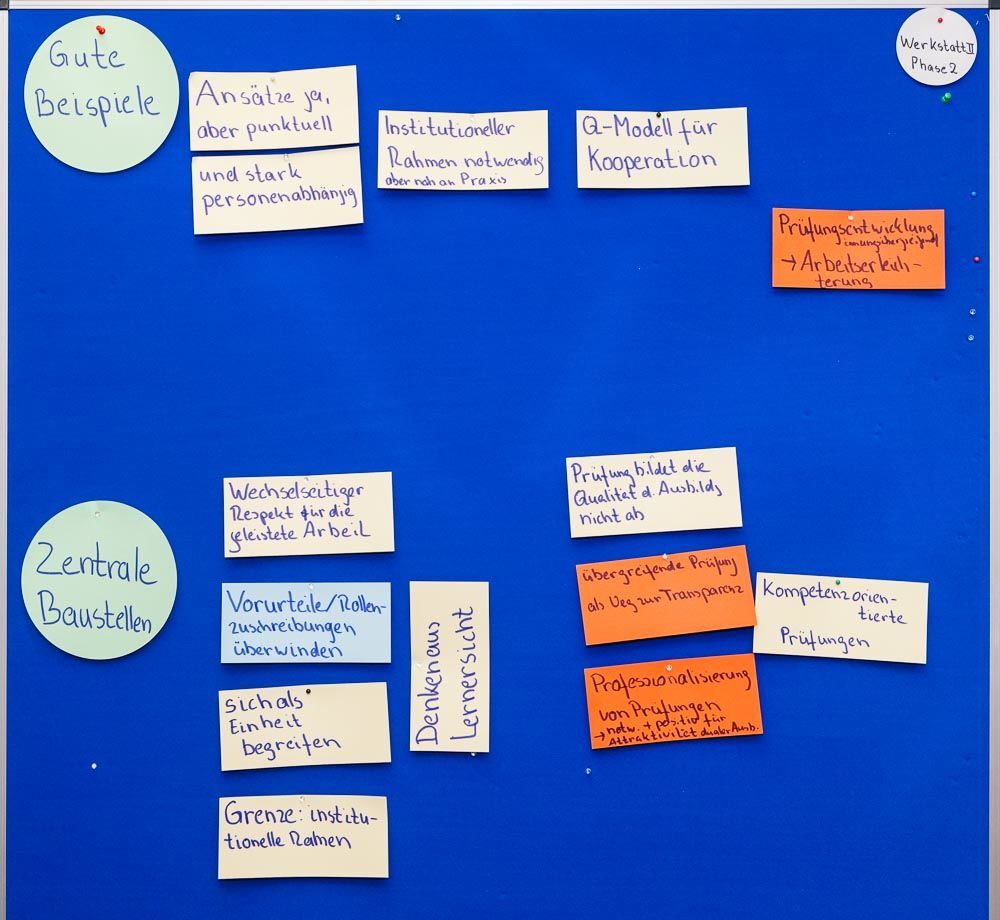 Gute
Beispiele
Werkstatt II
Phase 2
Ansätze ja,
aber punktuell
und stark
personenabhängig
Institutioneller
Rahmen notwendig
aber nah an Praxis
Q-Modell für
Kooperation
Prüfungsentwicklung
innungsübergreifend
→ Arbeitserleich-
terung
Zentrale
Baustellen
Wechselseitiger
Respekt für die
geleistete Arbeit
Vorurteile/Rollen-
zuschreibungen
überwinden
sich als
Einheit
begreifen
Grenze: institu-
tionelle Ramen
Denken aus
Lernersicht
Prüfung bildet die
Qualität d. Ausbildg
nicht ab
übergreifende Prüfung
als Weg zur Transparenz
Kompetenzorien-
tierte
Prüfungen
Professionalisierung
von Prüfungen
→ notw. + positiv für
Attraktivität dualer Ausb.